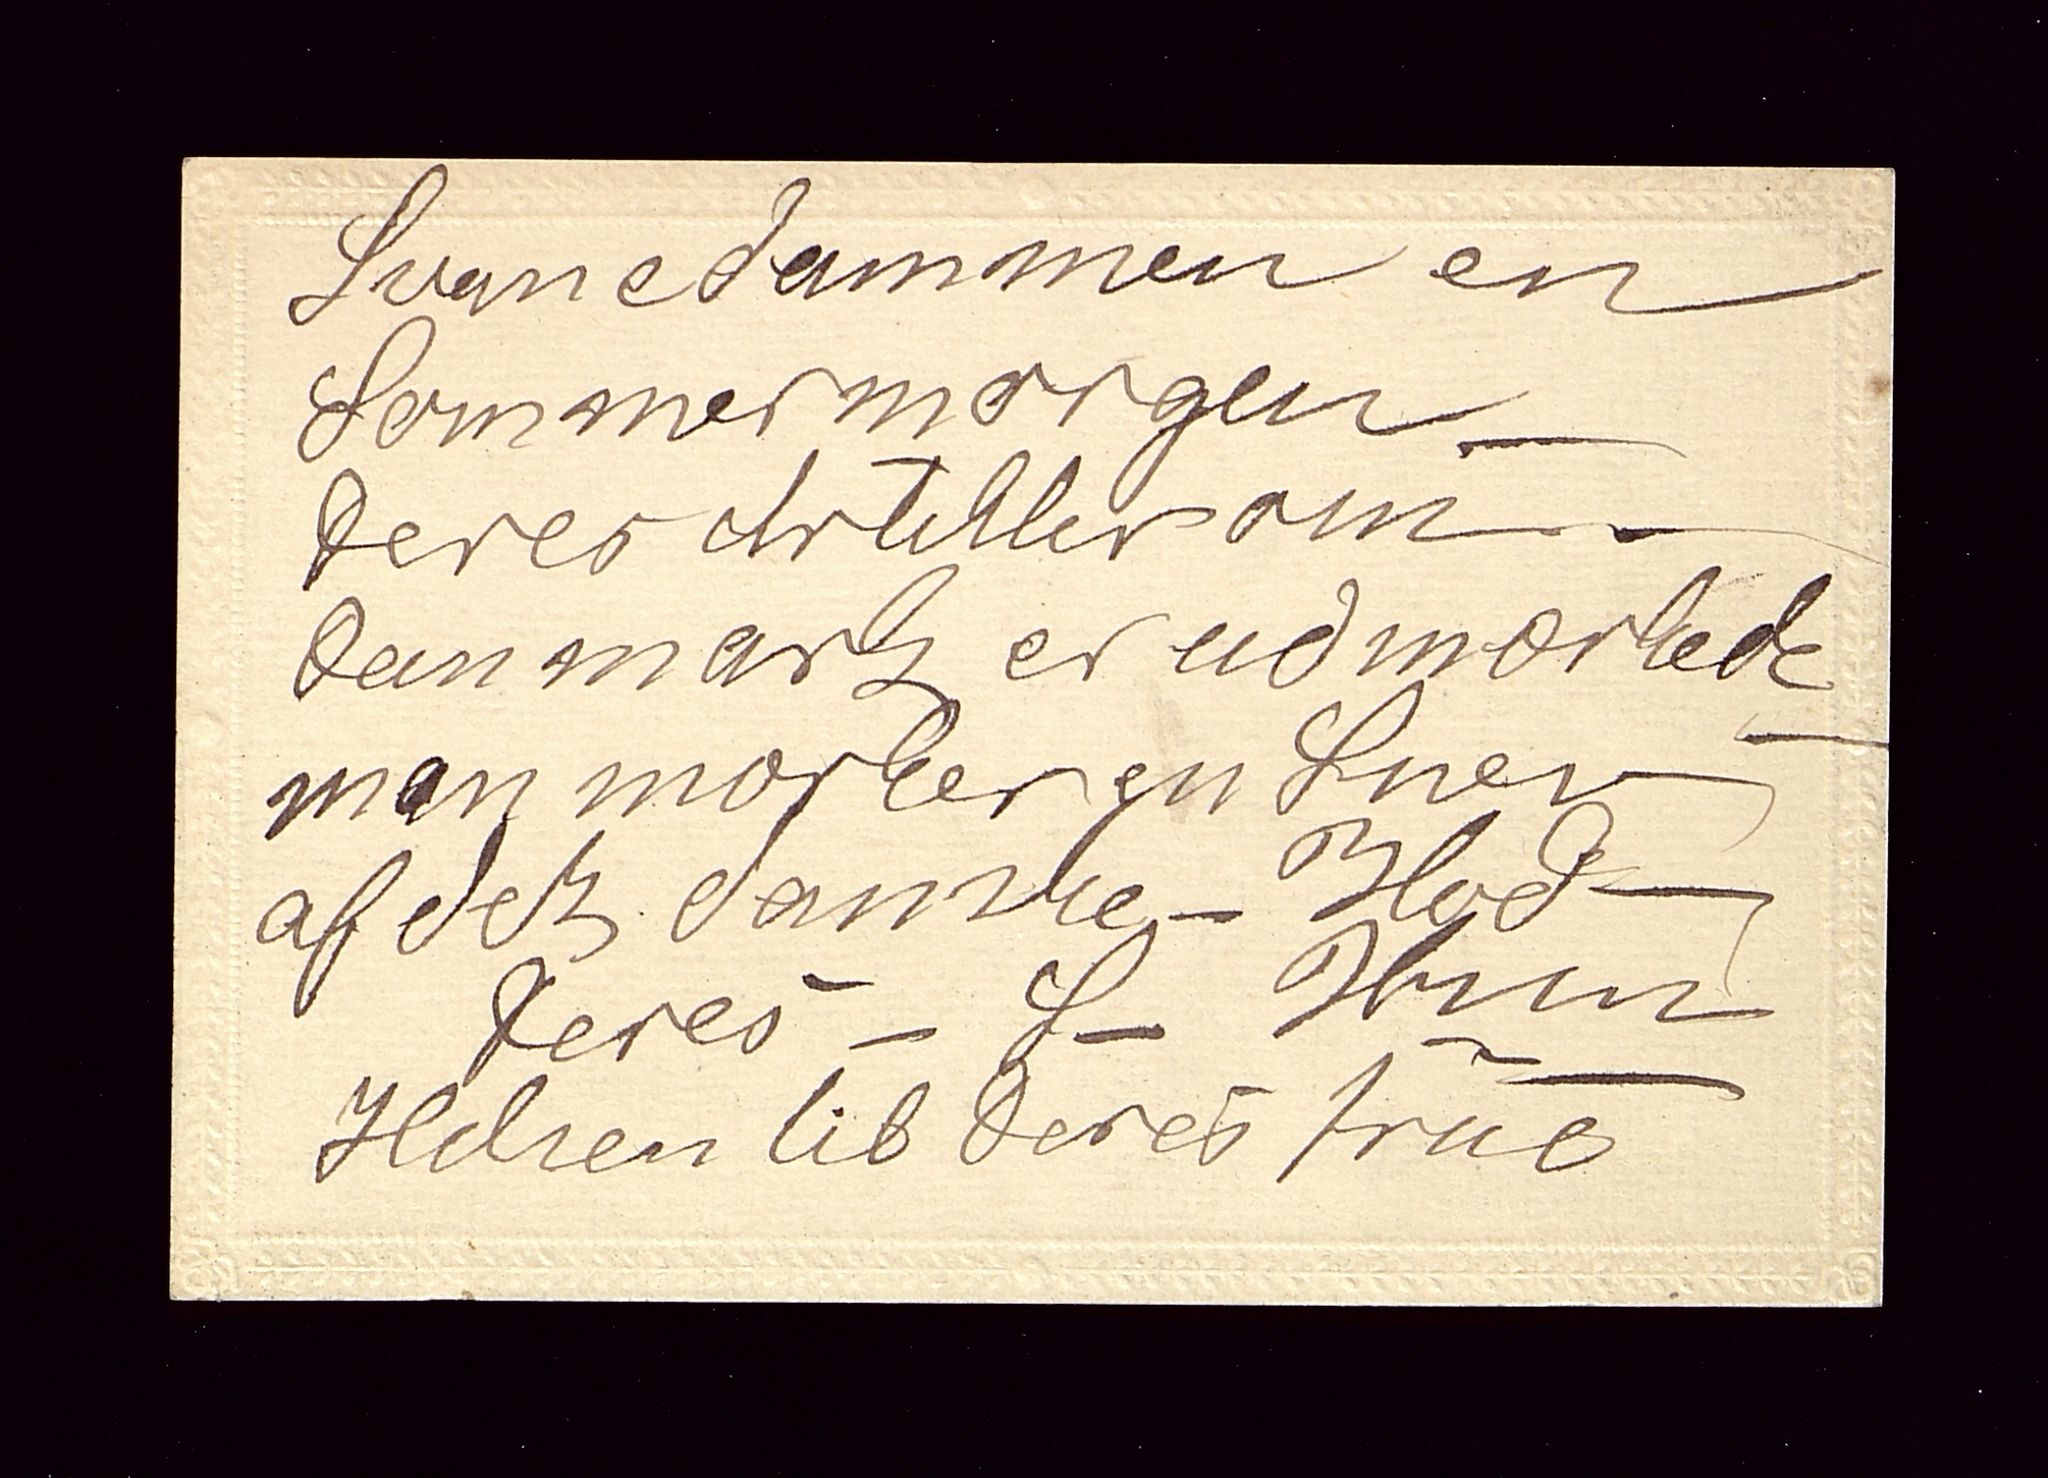 Svanedammen en
Sommermorgen
Deres Artikler om
Danmark er udmærkede
man mærker en Snev
af det danske – Blod
Deres – H –
Hilsen til Deres frue